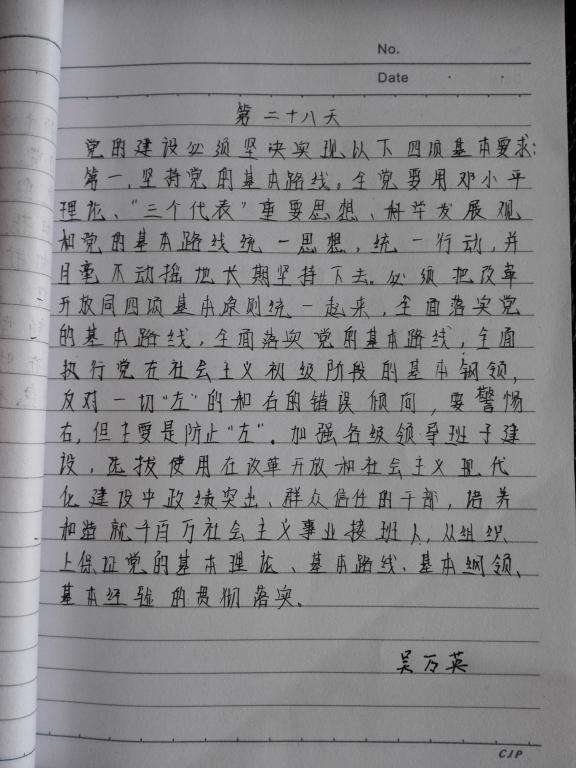 No.
Date
第二十八天
党的建设必须坚决实现以下四项基本要求:
第一,坚持党的基本路线。全党要用邓小平
理论、"三个代表"重要思想、科学发展观
和党的基本路线统一思想,统一行动,并
且毫不动摇地长期坚持下去。必须把改革
开放同四项基本原则统一起来,全面落实党
的基本路线,全面落实党的基本路线,全面
执行党在社会主义初级阶段的基本钢领,
反对一切"左"的和右的错误倾向,要警惕
右,但主要是防止"左"。加强各级领导班子建
设,选拔使用在改革开放和社会主义现代
化建设中政绩突出、群众信任的干部,培养
和造就千百万社会主义事业接班人,从组织
上保证党的基本理论、基本路线、基本纲领、
基本经验的贯彻落实。
吴万英
CJP